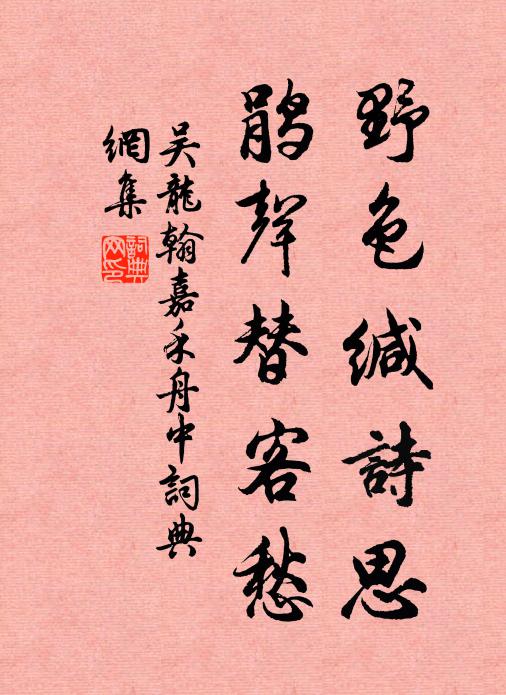 野色緘詩思
鹃聲替客愁
吴龍翰嘉禾舟中詞典
網集
詞典
网印